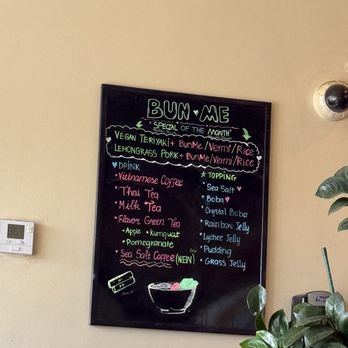 BUN ♥ ME
SPECIAL OF THE MONTH
VEGAN TERIYAKI + BUNME/VERMI/RICE
LEMONGRASS PORK + BUNME/VERMI/RICE
♥ DRINK
Vietnamese Coffee
Thai Tea
Milk Tea
Flavor Green Tea
• Apple • Kumquat
• Pomegranate
Sea Salt Coffee (NEW)
★ TOPPING
• Sea Salt ♥
• Boba ♥
• Crystal Boba
• Rainbow Jelly
• Lychee Jelly
• Pudding
• Grass Jelly